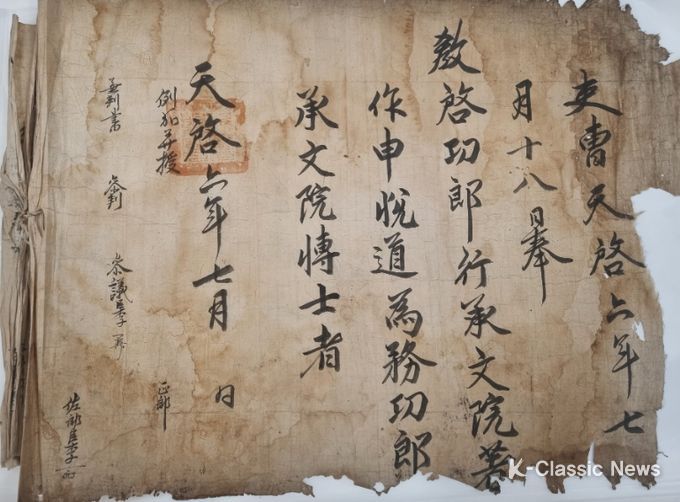 吏曹天啓六年七
月十八日奉
教啓功郎行承文院著
作申悅道為務功郎
承文院博士者
天啓六年七月 日
例加并授
判書 參判 參議臣李
正郎
佐郎臣李
K-Classic News